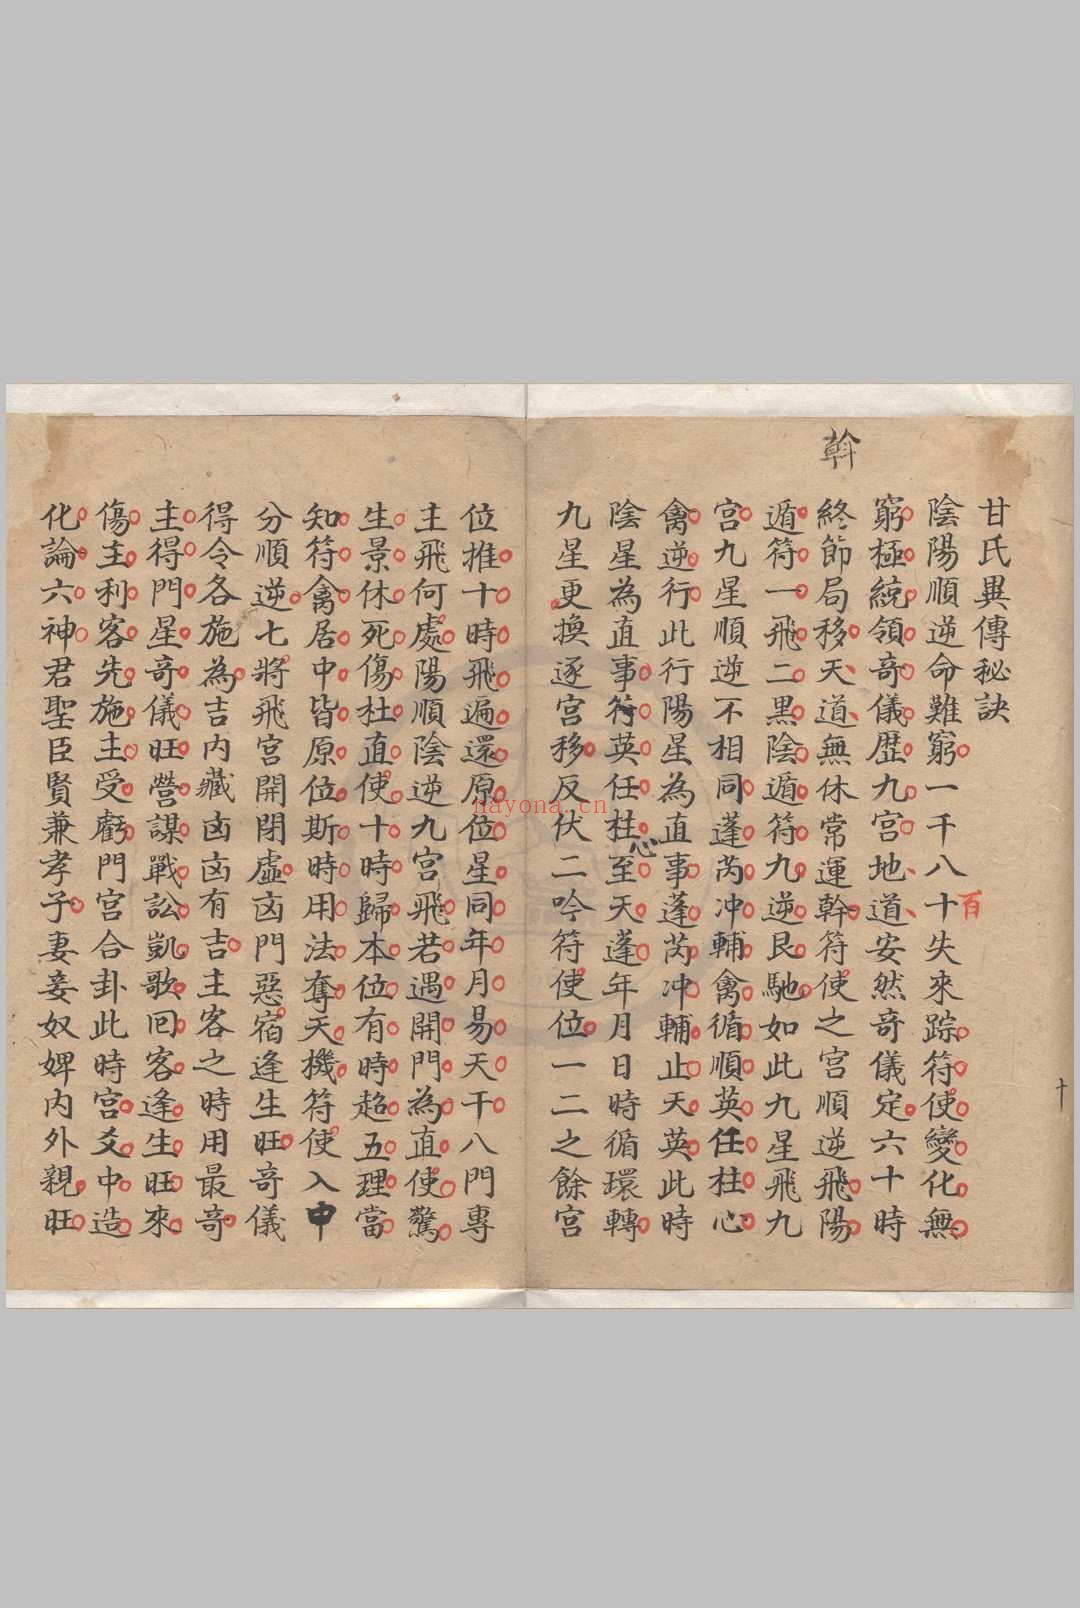 斡
甘氏異傳秘訣
陰陽順逆命難窮一千八十失來踪符使變化無
百
窮極統領奇儀歷九宮地道安然奇儀定六十時
終節局移天道無休常運斡符使之宮順逆飛陽
遁符一飛二黑陰遁符九逆艮馳如此九星飛九
宮九星順逆不相同蓬芮冲輔禽循順英任柱心
禽逆行此行陽星為直事蓬芮冲輔止天英此時
陰星為直事符英任柱至天蓬年月日時循環轉
心
九星更換逐宮移反伏二吟符使位一二之餘宮
十
位推十時飛遍還原位星同年月易天干八門專
主飛何處陽順陰逆九宮飛若遇開門為直使驚
生景休死傷杜直使十時歸本位有時超五理當
知符禽居中皆原位斯時用法奪天機符使入中
分順逆七將飛宮開閉虛凶門惡宿逢生旺奇儀
得令各施為吉內藏凶凶有吉主客之時用最奇
主得門星奇儀旺營謀戰訟凱歌回客逢生旺來
傷主利客先施主受虧門宮合卦此時宮爻中造
化論六神君聖臣賢兼孝子妻妾奴婢內外親旺
nayona.cn